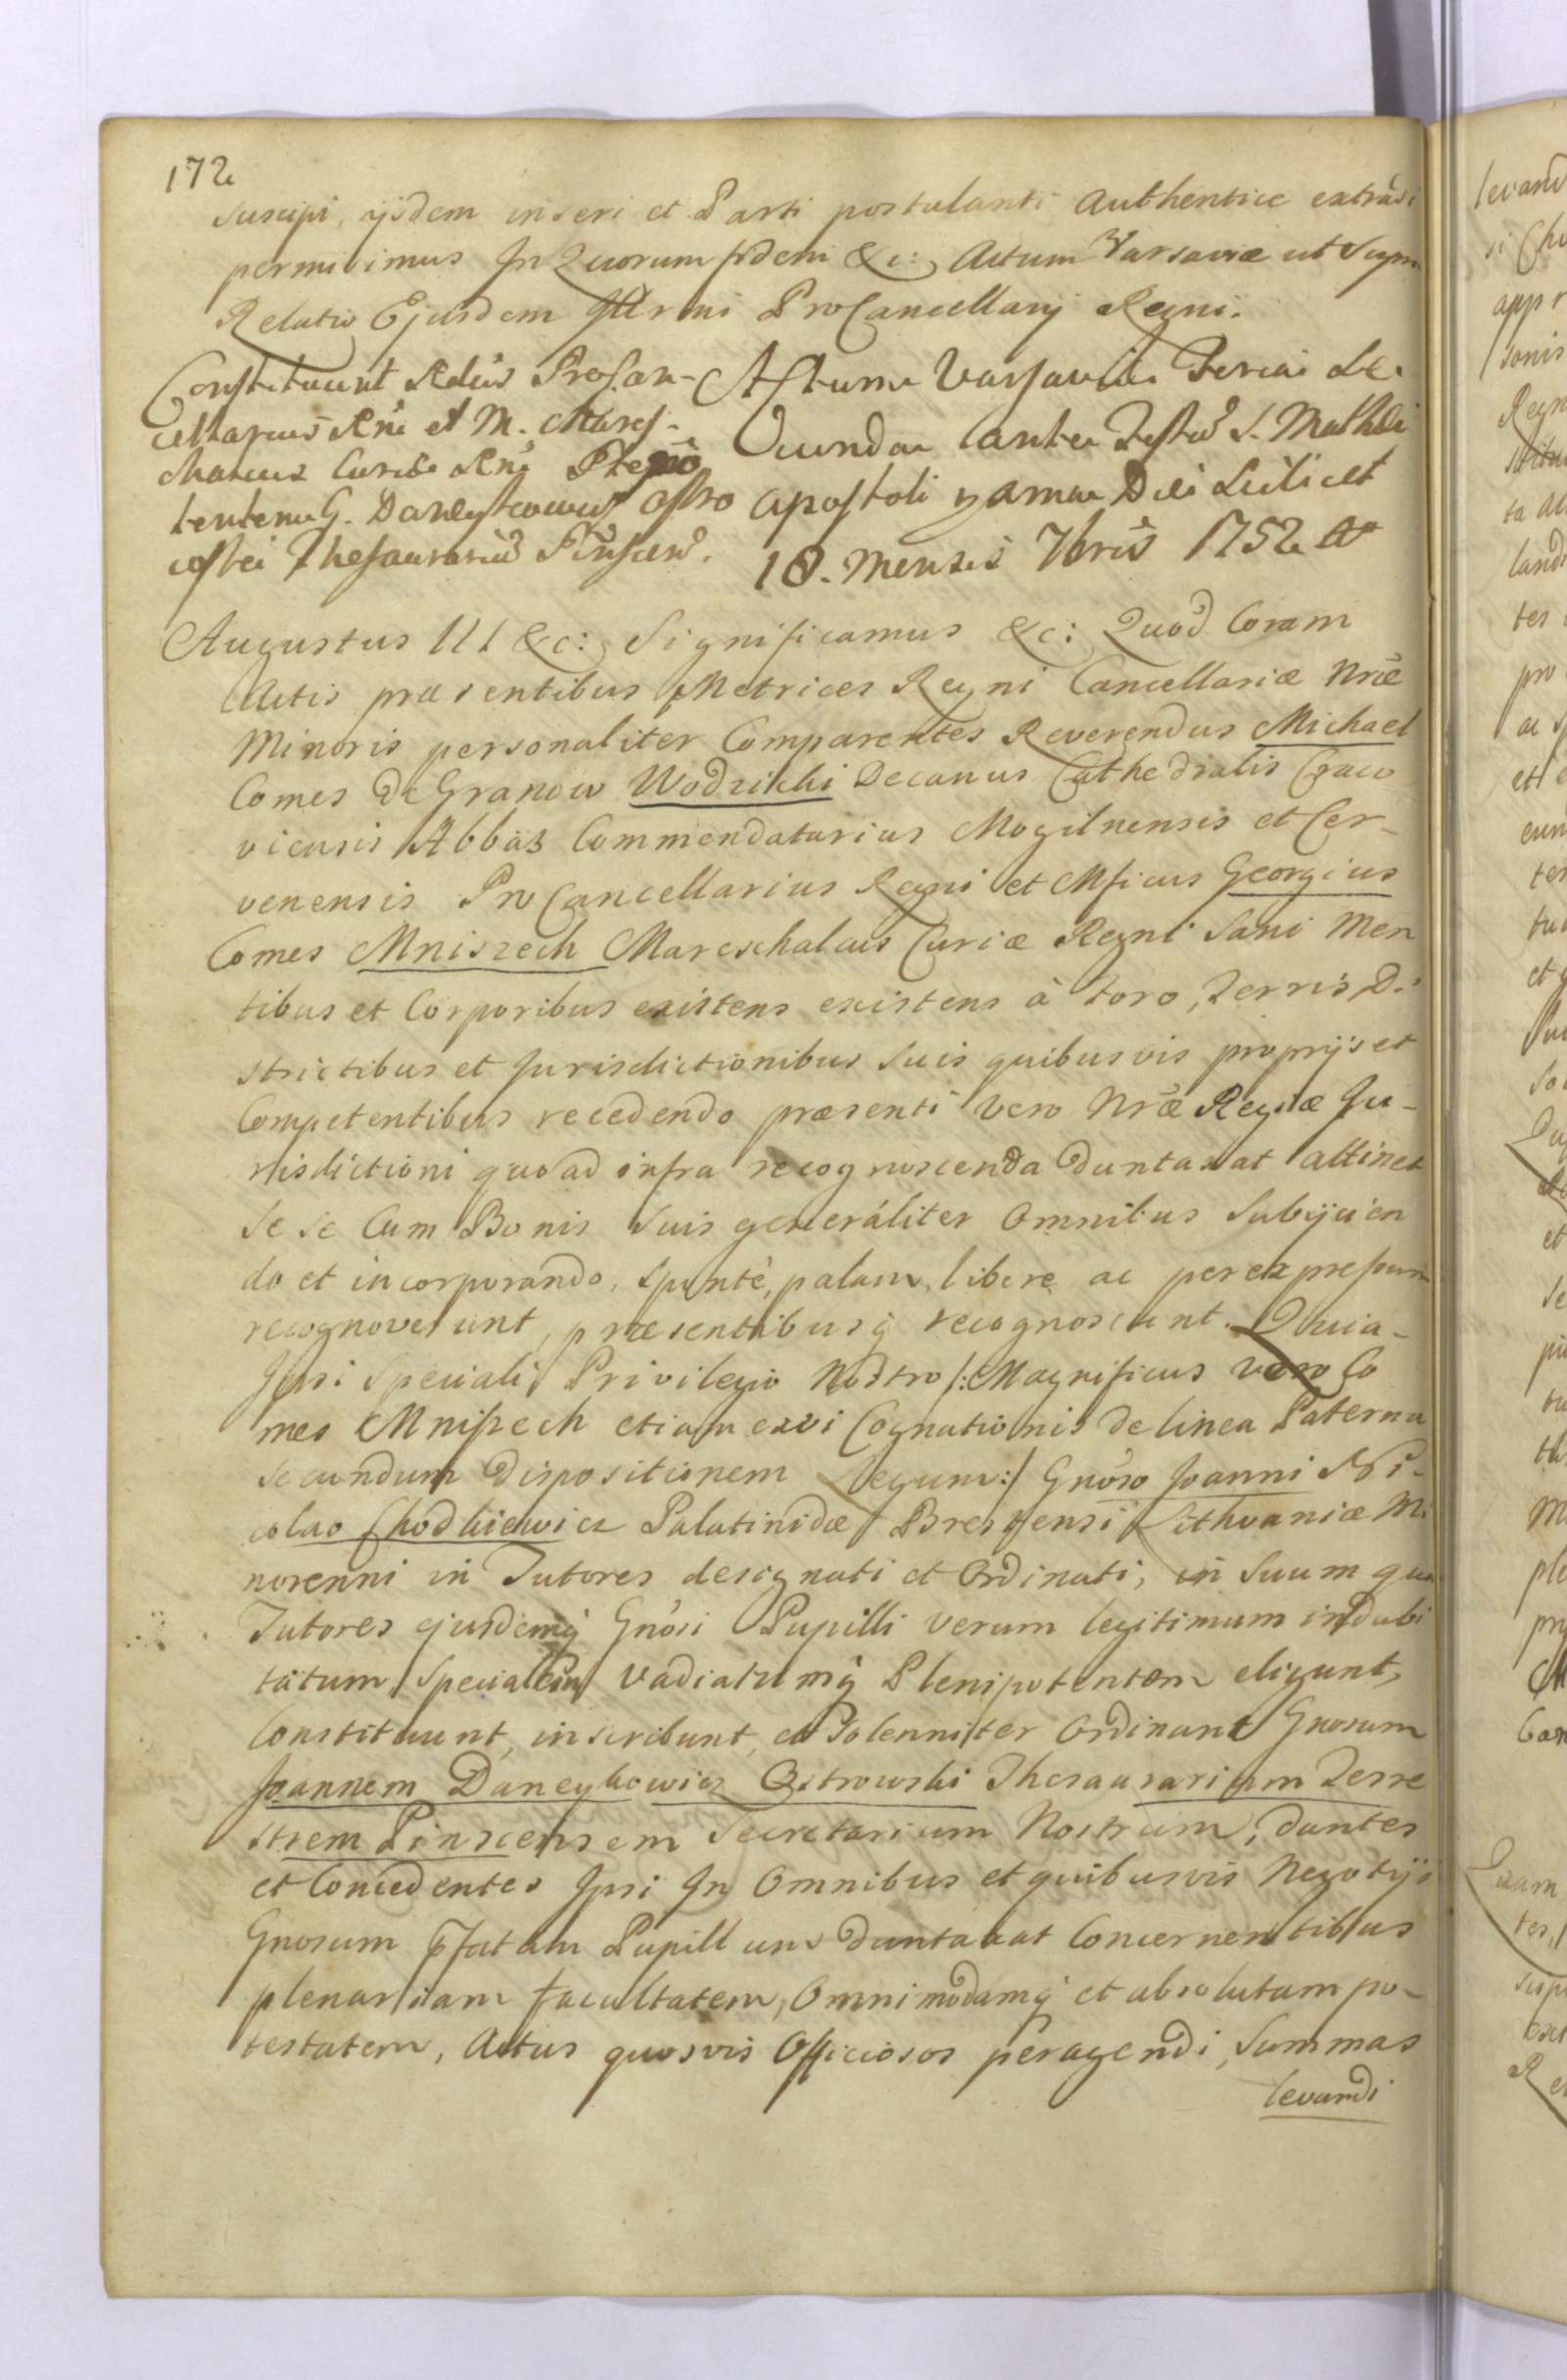 172
suscipi, ijsdem inseri et Parti postulanti Authentice extradi
permisimus In Quorum fidem &c: Actum Varsaviæ ut Supra
Relatio Ejusdem Illrmi ProCancellarij Regni.
Constituunt Rdus ProCan-
cellarius Rni et M. Mares-
chalcus Curiæ Rni Pleni
tentem G. Daneykowicz Ostro
Thesaurariū Pinscen.
Actum Varsaviæ Feria Se-
cunda ante Festū S. Mathæi
Apostoli Die Scilicet
18. Mensis 7bris 1752 Ao
Augustus III &c: Significamus &c: Quod Coram
Actis præsentibus Metrices Regni Cancellariæ Nræ
Minoris personaliter Comparentes Reverendus Michael
Comes De Granow Wodzicki Decanus Cathedralis Craco
viensis Abbas Commendatarius Mogilnensis et Cer-
venensis ProCancellarius Regni et Mficus Georgius
Comes Mniszech Mareschalcus Curiæ Regni Sani Men
tibus et Corporibus existens existens à foro, Terris, Di
strictibus et Jurisdictionibus Suis quibusvis proprijs et
Competentibus recedendo præsenti vero Nræ Regiæ Ju-
risdictioni quoad infra recognoscenda duntaxat attinet
Se Se Cum Bonis Suis generaliter Omnibus Subijcien
do et incorporando, Spontè, palam, libere ac per expressum
recognoverunt, præsentibusq recognoscunt. Quia-
Ipsi Speciali Privilegio Nostro /: Magnificus vero Co
mes Mniszech etiam ex vi Cognationis de linea Paterna
Secundum Dispositionem Legum :/ Gnoso Joanni Ni-
colao Chodkiewicz Palatinidæ Brestensi Lithvaniæ Mi
norenni in Tutores designati et Ordinati, in Suum qua
Tutores ejusdemq Gnosi Pupilli verum legitimum indubi
tatum Specialem Vadiatumq Plenipotentem eligunt,
Constituunt, inscribunt, et Solenniter Ordinant Gnosum
Joannem Daneykowicz Ostrowski Thesaurarium Terre
strem Pinscensem Secretarium Nostrum, dantes
et Concedentes Ipsi In Omnibus et quibusvis Negotijs
Gnosum pfatum Pupillum duntaxat Concernentibus
plenariam facultatem, Omnimodamq et absolutam po-
testatem, Actus quosvis Officiosos peragendi, Summas
levandi